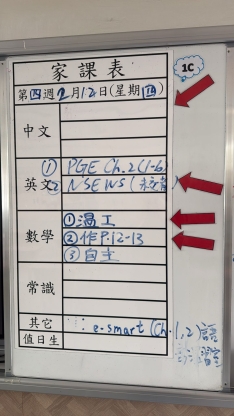 1C
家課表
第四週2月12日(星期四)
中文
英文
① PGE Ch.2(1-6)
② NSEWS (未交者)
數學
① 溫工
② 作P.12-13
③ 自主
常識
其它
e-smart (Ch.1,2)
值日生